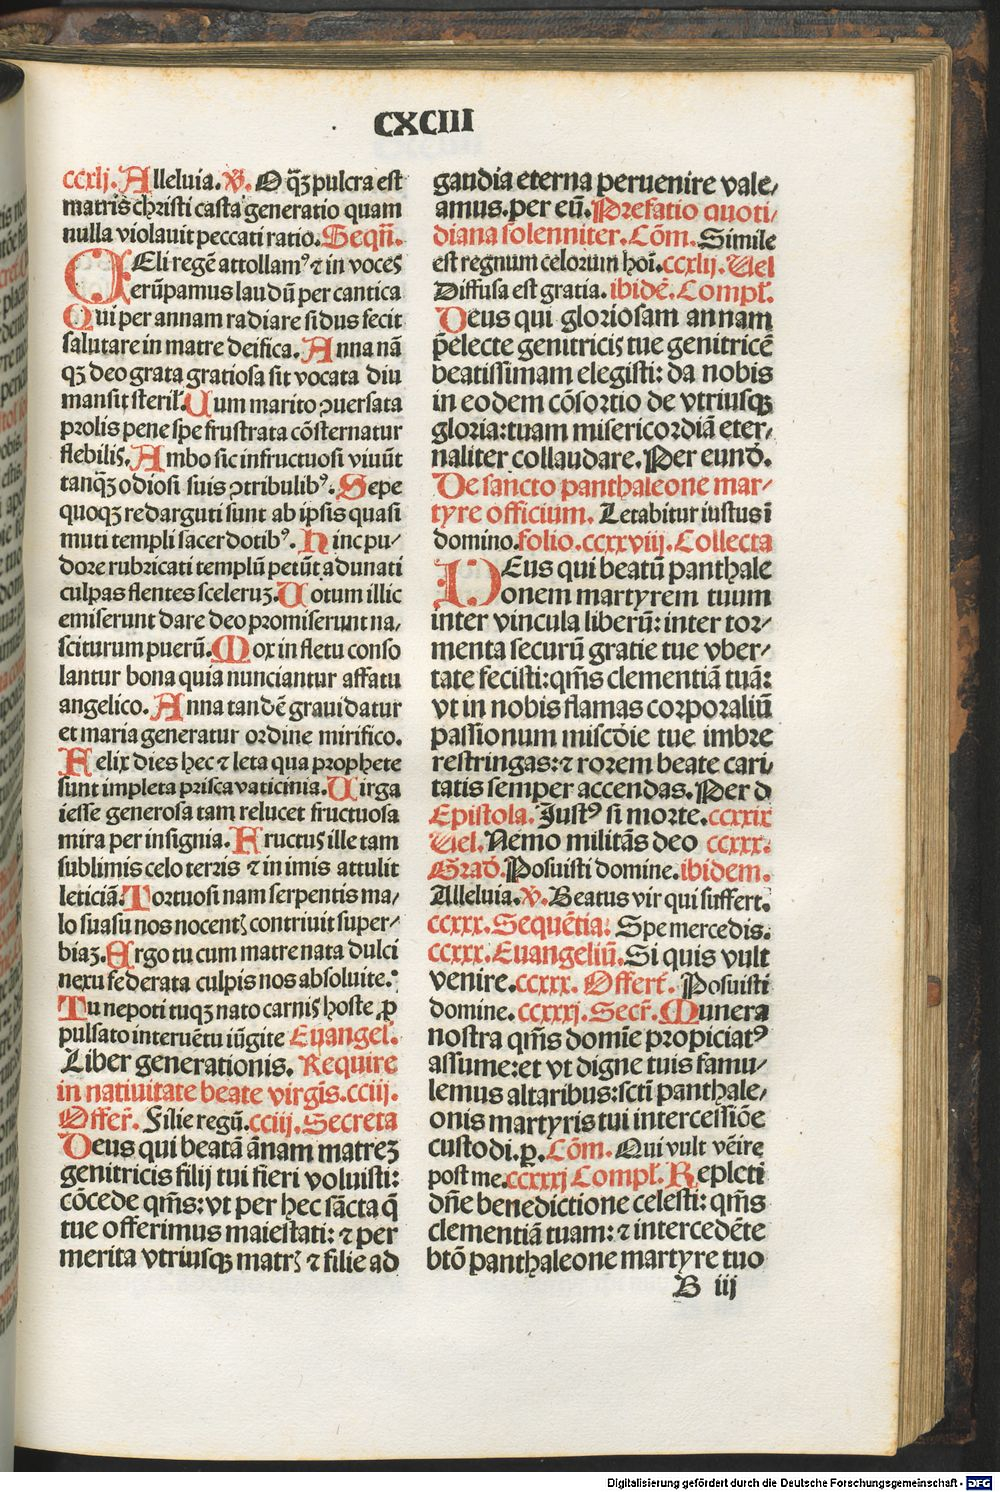 CXCIII
ccxlj. Alleluia. V. O q̄ʒ pulcra est
matris christi casta generatio quam
nulla violauit peccati ratio. Seqn̄.
CEli regē attollamꝰ ⁊ in voces
erūpamus laudū per cantica
Qui per annam radiare sidus fecit
salutare in matre deifica. Anna nā
qʒ deo grata gratiosa sit vocata diu
mansit steril'. Cum marito ꝯuersata
prolis pene spe frustrata cōsternatur
flebilis. Ambo sic infructuosi viuūt
tanqʒ odiosi suis ꝯtribulibꝰ. Sepe
quoqʒ redarguti sunt ab ipsis quasi
muti templi sacerdotibꝰ. Hinc pu⸗
dore rubricati templū petūt adunati
culpas flentes sceleruʒ. Uotum illic
emiserunt dare deo promiserunt na⸗
sciturum puerū. Mox in fletu conso
lantur bona quia nunciantur affatu
angelico. Anna tandē grauidatur
et maria generatur ordine mirifico.
Felix dies hec ⁊ leta qua prophete
sunt impleta prisca vaticinia. Uirga
iesse generosa tam relucet fructuosa
mira per insignia. Fructus ille tam
sublimis celo terris ⁊ in imis attulit
leticiā. Tortuosi nam serpentis ma⸗
lo suasu nos nocentꝭ contriuit super⸗
biaʒ. Ergo tu cum matre nata dulci
nexu federata culpis nos absoluite.
Tu nepoti tuqʒ nato carnis hoste ꝓ
pulsato interuētu iūgite Euangel'.
Liber generationis. Require
in natiuitate beate virgīs. cciij.
Offer̄. Filie regū. cciij. Secreta
Deus qui beatā ānam matreʒ
genitricis filij tui fieri voluisti:
cōcede qm̄s: vt per hec sācta q̄
tue offerimus maiestati: ⁊ per
merita vtriusqʒ matrꝭ ⁊ filie ad
gaudia eterna peruenire vale⸗
amus. per eū. Prefatio quoti⸗
diana solenniter. Cōm. Simile
est regnum celorum hoī. ccxlij. Uel
Diffusa est gratia. ibidē. Compl'.
Deus qui gloriosam annam
p̄electe genitricis tue genitricē
beatissimam elegisti: da nobis
in eodem cōsortio de vtriusqʒ
gloria: tuam misericordiā eter⸗
naliter collaudare. Per eund̄.
De sancto panthaleone mar⸗
tyre officium. Letabitur iustus ī
domino. folio. ccxxviij. Collecta
DEus qui beatū panthale
onem martyrem tuum
inter vincula liberū: inter tor⸗
menta securū gratie tue vber⸗
tate fecisti: qm̄s clementiā tuā:
vt in nobis flamas corporaliū
passionum miscōie tue imbre
restringas: ⁊ rorem beate cari⸗
tatis semper accendas. Per d
Epistola. Justꝰ si morte. ccxxix
Uel. Nemo militās deo ccxxx.
Grad̄. Posuisti domine. ibidem.
Alleluia. V. Beatus vir qui suffert.
ccxxx. Sequētia. Spe mercedis.
ccxxx. Euangeliū. Si quis vult
venire. ccxxx. Offert̄. Posuisti
domine. ccxxxj. Secr̄. Munera
nostra qm̄s domīe propiciatꝰ
assume: et vt digne tuis famu⸗
lemus altaribus: scti panthale⸗
onis martyris tui intercessiōe
custodi. ꝑ. Cōm. Qui vult vēire
post me. ccxxxj Compl'. Repleti
dn̄e benedictione celesti: qm̄s
clementiā tuam: ⁊ intercedēte
btō panthaleone martyre tuo
B iij
Digitalisierung gefördert durch die Deutsche Forschungsgemeinschaft - DFG